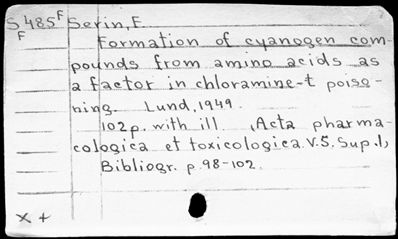 S 485 F Serin, F.
F
Formation of cyanogen com-
pounds from amino acids as
a factor in chloramine-t poiso-
ning. Lund, 1949.
102p. with ill. (Acta pharma-
cologica et toxicologica. V.5, Sup.1)
Bibliogr. p. 98-102.
x +